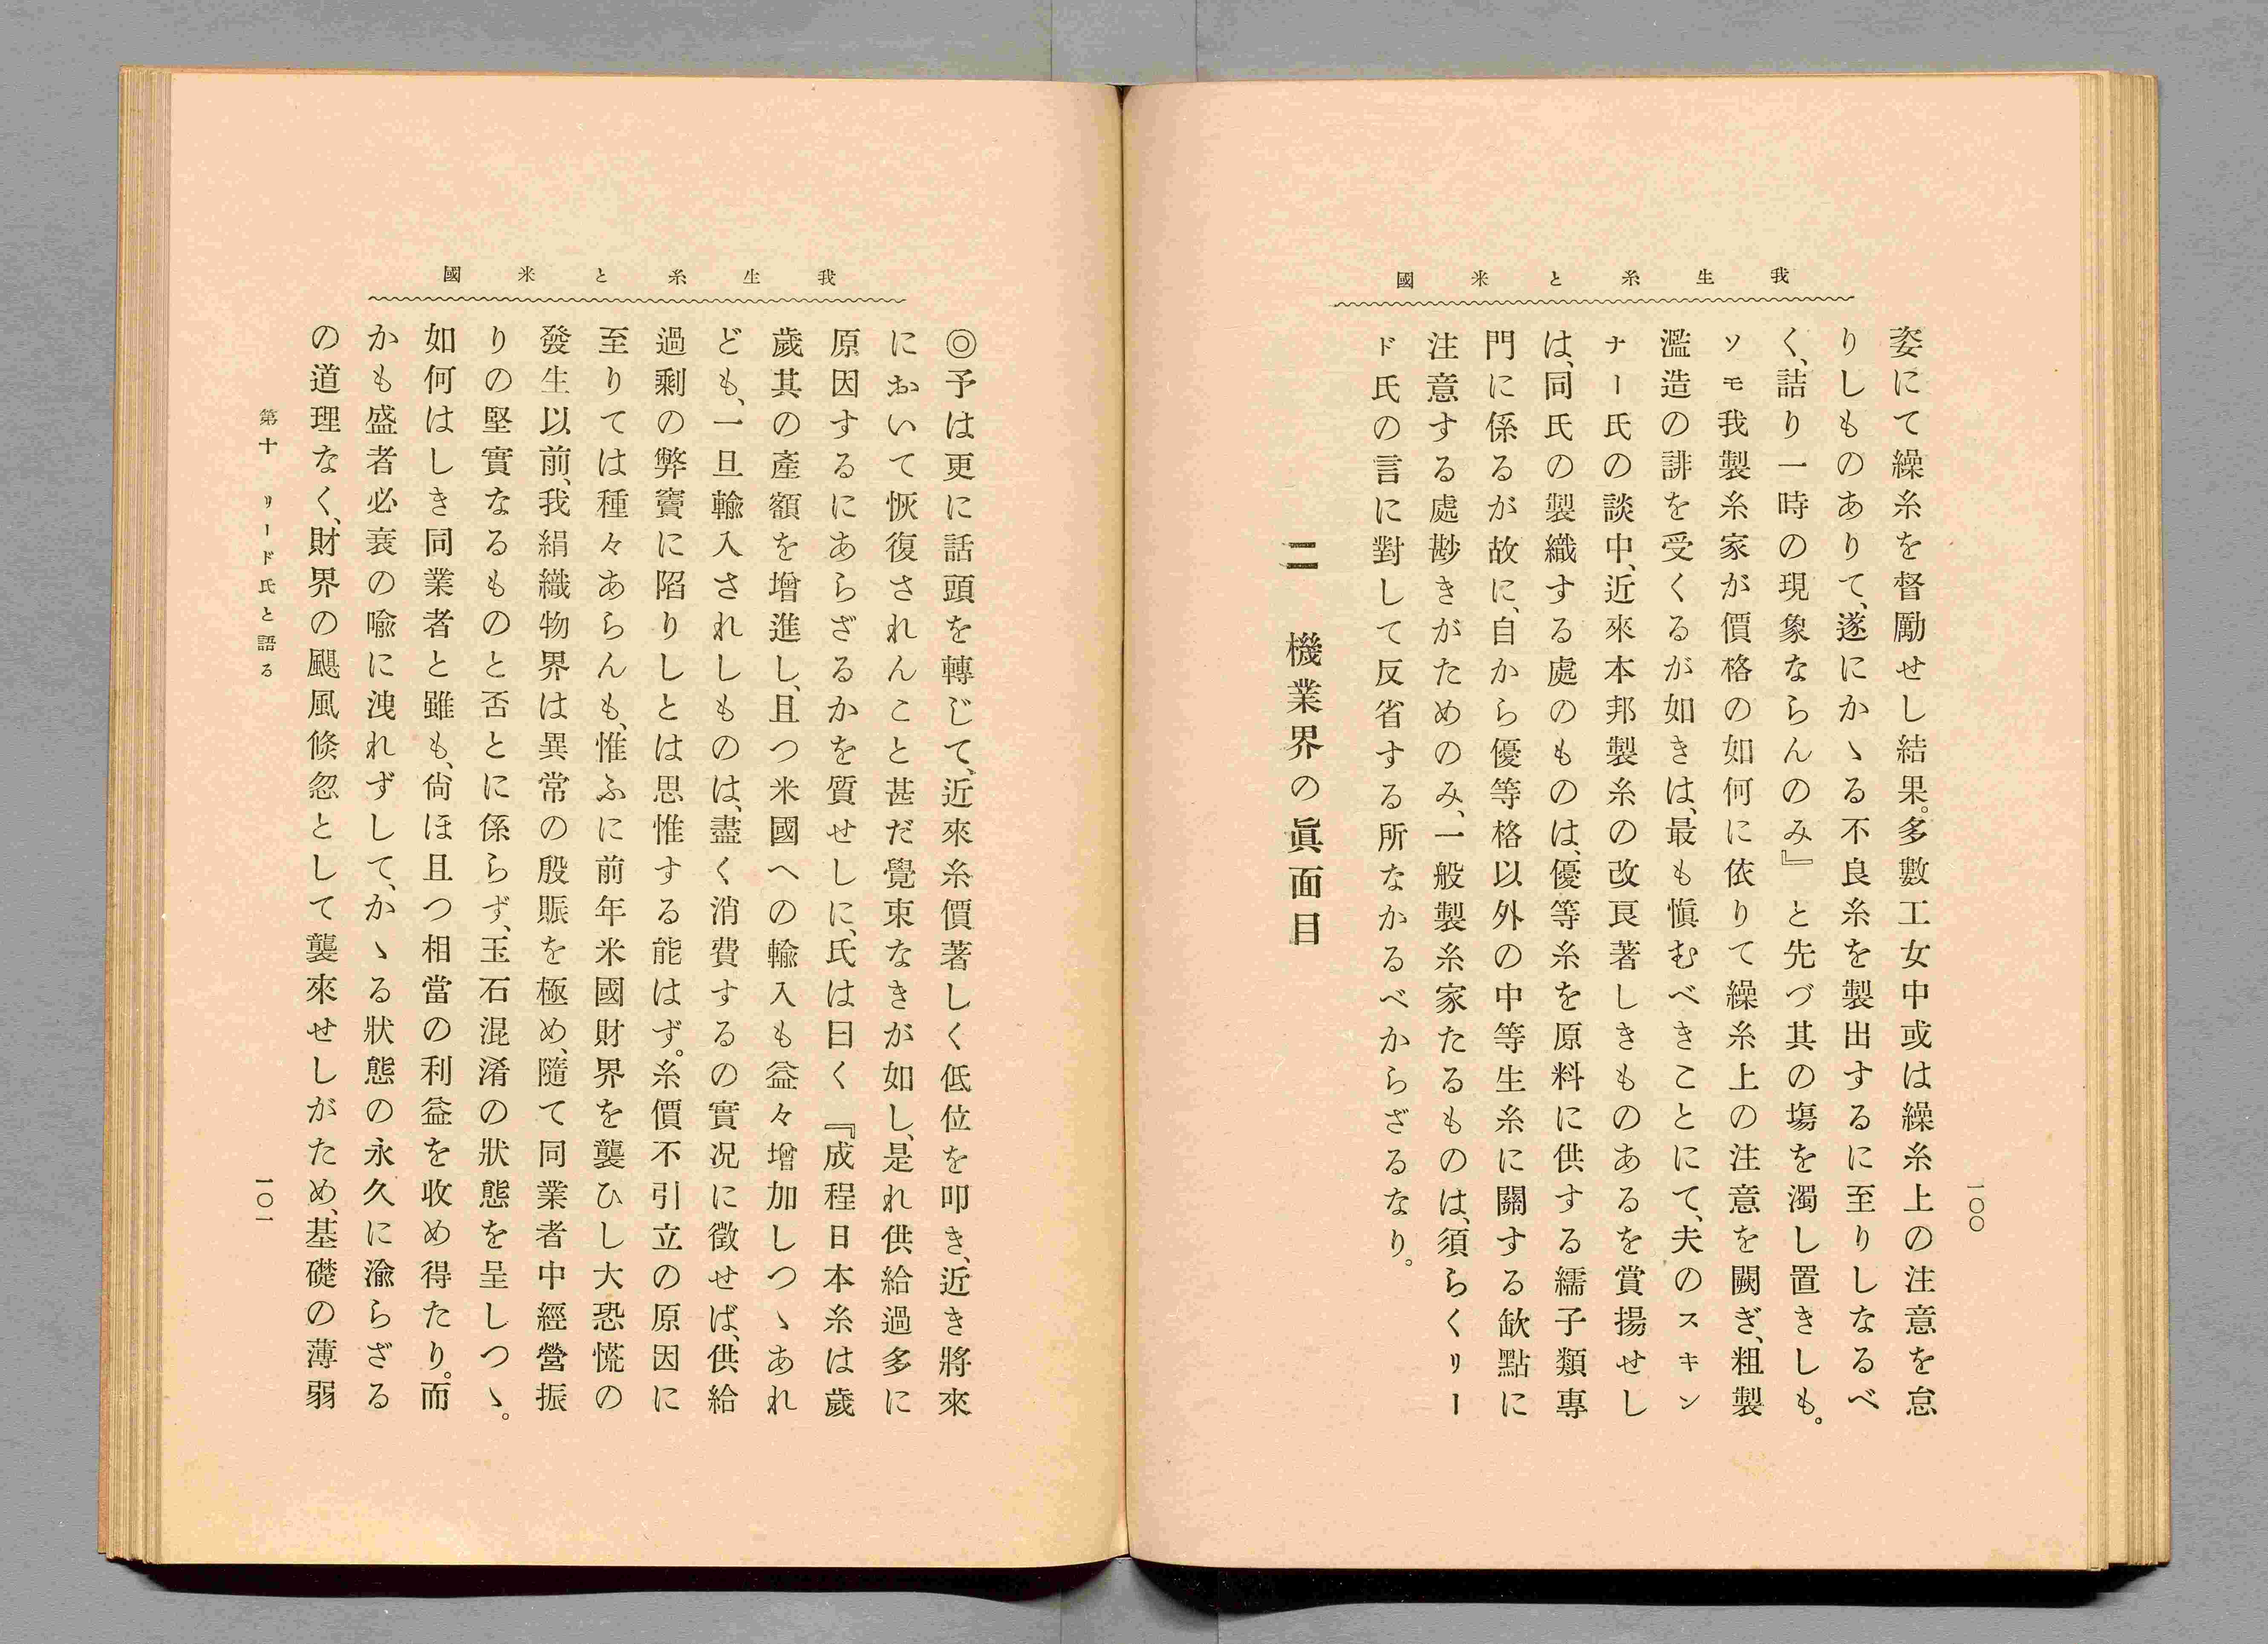 我生糸と米國
姿にて繰糸を督勵せし結果。多數工女中或は繰糸上の注意を怠
りしものありて、遂にかゝる不良糸を製出するに至りしなるべ
く、詰り一時の現象ならんのみ』と先づ其の塲を濁し置きしも。
ソモ我製糸家が價格の如何に依りて繰糸上の注意を闕ぎ、粗製
濫造の誹を受くるが如きは、最も愼むべきことにて、夫のスキン
ナー氏の談中、近來本邦製糸の改良著しきものあるを賞揚せし
は、同氏の製織する處のものは、優等糸を原料に供する繻子類專
門に係るが故に、自から優等格以外の中等生糸に關する缺點に
注意する處尠きがためのみ、一般製糸家たるものは、須らくリー
ド氏の言に對して反省する所なかるべからざるなり。
二 機業界の眞面目
一〇〇
我生糸と米國
◎予は更に話頭を轉じて、近來糸價著しく低位を叩き、近き將來
において恢復されんこと甚だ覺束なきが如し、是れ供給過多に
原因するにあらざるかを質せしに、氏は曰く『成程日本糸は歲
歲其の產額を增進し、且つ米國への輸入も益々增加しつゝあれ
ども、一旦輸入されしものは、盡く消費するの實況に徵せば、供給
過剩の弊竇に陷りしとは思惟する能はず。糸價不引立の原因に
至りては種々あらんも、惟ふに前年米國財界を襲ひし大恐慌の
發生以前、我絹織物界は異常の殷賑を極め、隨て同業者中經營振
りの堅實なるものと否とに係らず、玉石混淆の狀態を呈しつゝ。
如何はしき同業者と雖も、尙ほ且つ相當の利益を收め得たり。而
かも盛者必衰の喩に洩れずして、かゝる狀態の永久に渝らざる
の道理なく、財界の颶風倏忽として襲來せしがため、基礎の薄弱
第十 リード氏と語る
一〇一